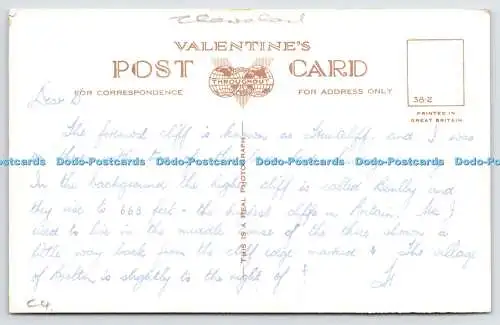 Cleveland
VALENTINE'S
POST CARD
THROUGHOUT
FOR CORRESPONDENCE
FOR ADDRESS ONLY
38-2
PRINTED IN
GREAT BRITAIN
THIS IS A REAL PHOTOGRAPH
Dear D
The forward cliff is known as and I was
Dodo-Postcards Dodo-Postcards Dodo-Postcards Dodo-Postcards Dodo-Postcards Dodo-Postcards
In the background the highest cliff is called and
they rise to 663 feet - the highest cliffs in Britain. Mr J
used to live in the middle house of the three shown a
little way back from the cliff edge marked The village
of is slightly to the right of
C4